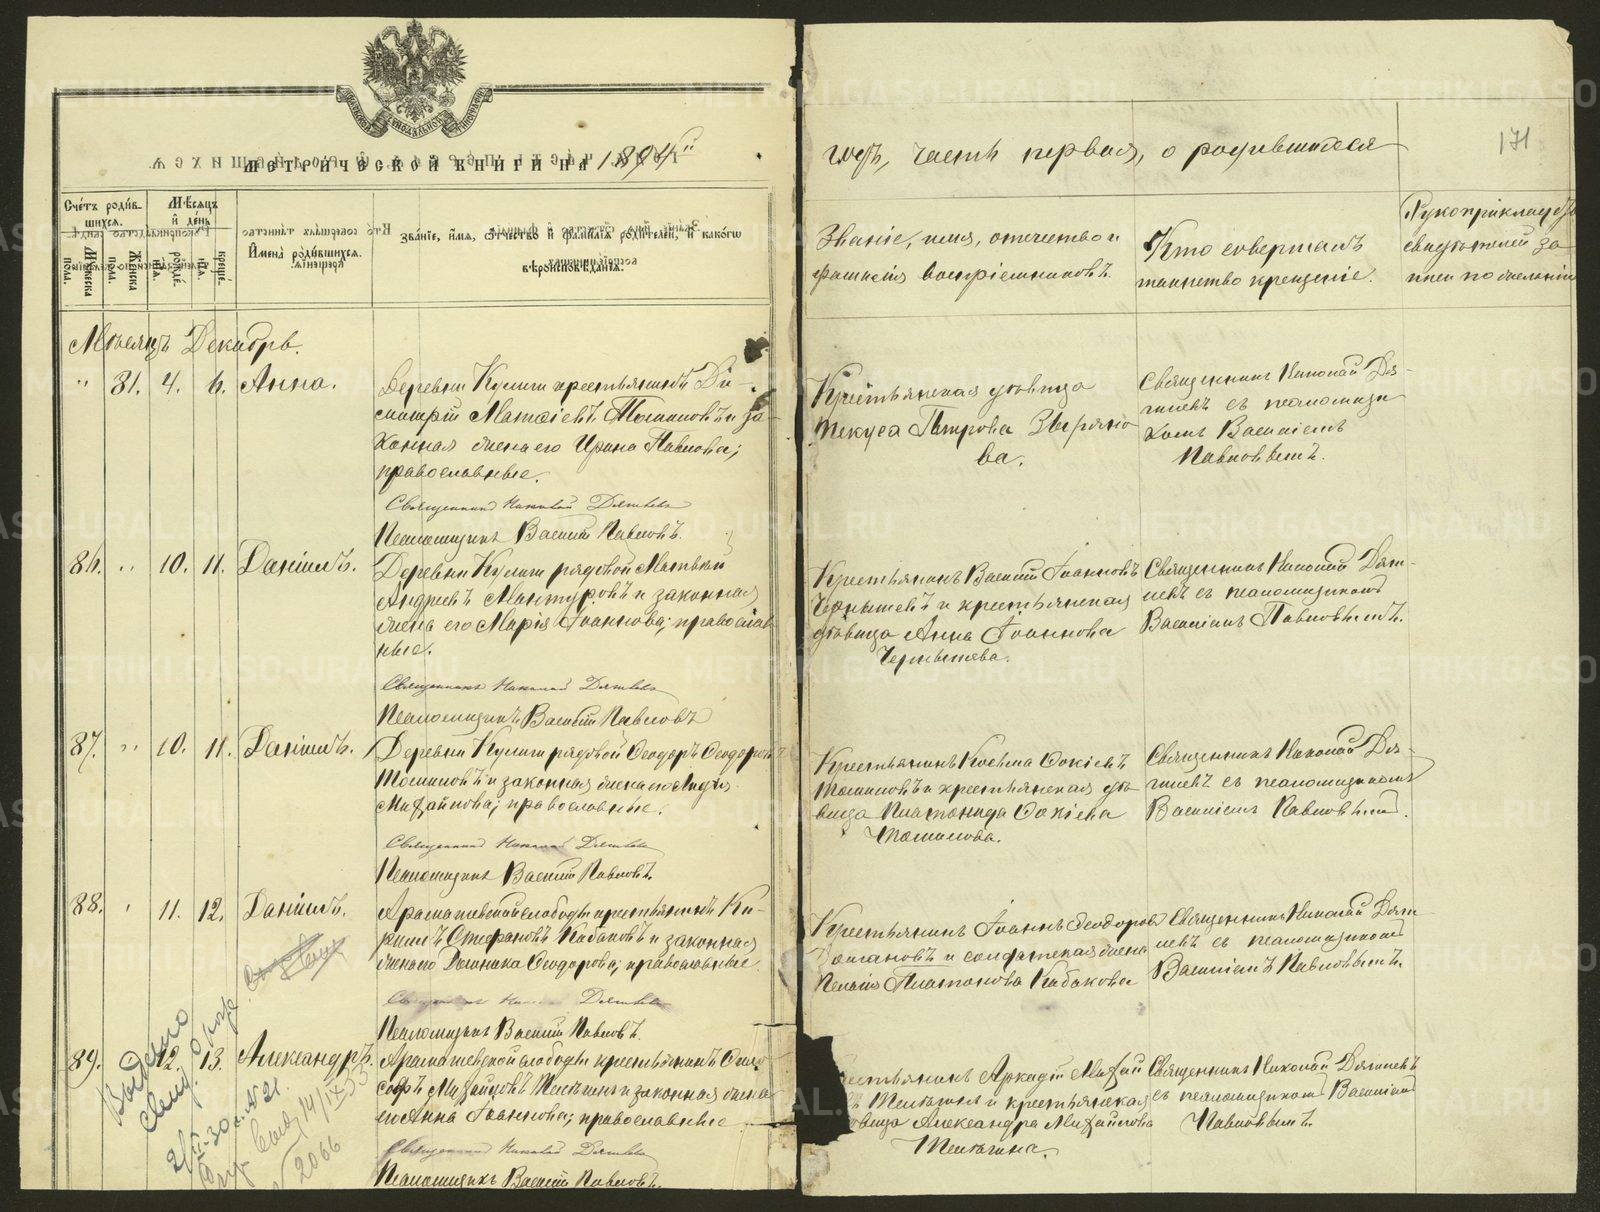 МЕТРИЧЕСКОЙ КНИГИ НА 1894й
годъ, часть первая, о родившихся
171
Счетъ родив-
шихся.
Мужеска пола.
Женска пола.
Мѣсяцъ и день
рожде-
нія.
креще-
нія.
Имена родившихся.
Званіе, имя, отчество и фамилія родителей, и какого
вѣроисповѣданія.
Званіе, имя, отчество и
фамилія воспріемниковъ.
Кто совершалъ
таинство крещенія.
Рукоприкладство
свидѣтелей за-
писи по желанію
Мѣсяцъ Декабрь.
" 81. 4. 6. Анна.
Деревни Кулиги крестьянинъ Ди-
митрій Матѳіевъ Томиловъ и за-
конная жена его Ирина Павлова;
православные.
Священникъ Николай Дягилевъ
Псаломщикъ Василій Павловъ.
Крестьянская дѣвица
Петрова Зыряно-
ва.
Священникъ Николай Дя-
гилевъ съ псаломщи-
комъ Василіемъ
Павловымъ.
86. " 10. 11. Даніилъ.
Деревни Кулиги рядовой Матвѣй
Андреевъ Мантуровъ и законная
жена его Марія Іоаннова; православ-
ные.
Священникъ Николай Дягилевъ
Псаломщикъ Василій Павловъ
Крестьянинъ Василій Іоанновъ
Чернышевъ и крестьянская
дѣвица Анна Іоаннова
Чернышева.
Священникъ Николай Дяги-
левъ съ псаломщикомъ
Василіемъ Павловымъ.
87. " 10. 11. Даніилъ.
Деревни Кулиги рядовой Ѳеодоръ Ѳеодоровъ
Томиловъ и законная жена его Лидія
Михайлова; православные.
Священникъ Николай Дягилевъ
Псаломщикъ Василій Павловъ.
Крестьянинъ Косьма Фокіевъ
Томиловъ и крестьянская дѣ-
вица Платонида Фокіева
Томилова.
Священникъ Николай Дя-
гилевъ съ псаломщикомъ
Василіемъ Павловымъ.
88. " 11. 12. Даніилъ.
Арамашевской слободы крестьянинъ Ки-
риллъ Стефановъ Кабаковъ и законная
жена его Домника Ѳеодорова; православные
Священникъ Николай Дягилевъ
Псаломщикъ Василій Павловъ.
Крестьянинъ Іоаннъ Ѳеодоровъ
и солдатская жена
Пелагія Платонова Кабакова
Священникъ Николай Дяги-
левъ съ псаломщикомъ
Василіемъ Павловымъ.
89. 12. 13. Александръ.
Арамашевской слободы крестьянинъ
Михайловъ и законная жена
его Анна Іоаннова; православные
Священникъ Николай Дягилевъ
Псаломщикъ Василій Павловъ.
Крестьянинъ Аркадій Михай-
и крестьянская
дѣвица Александра Михайлова
Священникъ Николай Дягилевъ
съ псаломщикомъ Василіемъ
Павловымъ.
Выдано
2066
METRIKI.GASO-URAL.RU